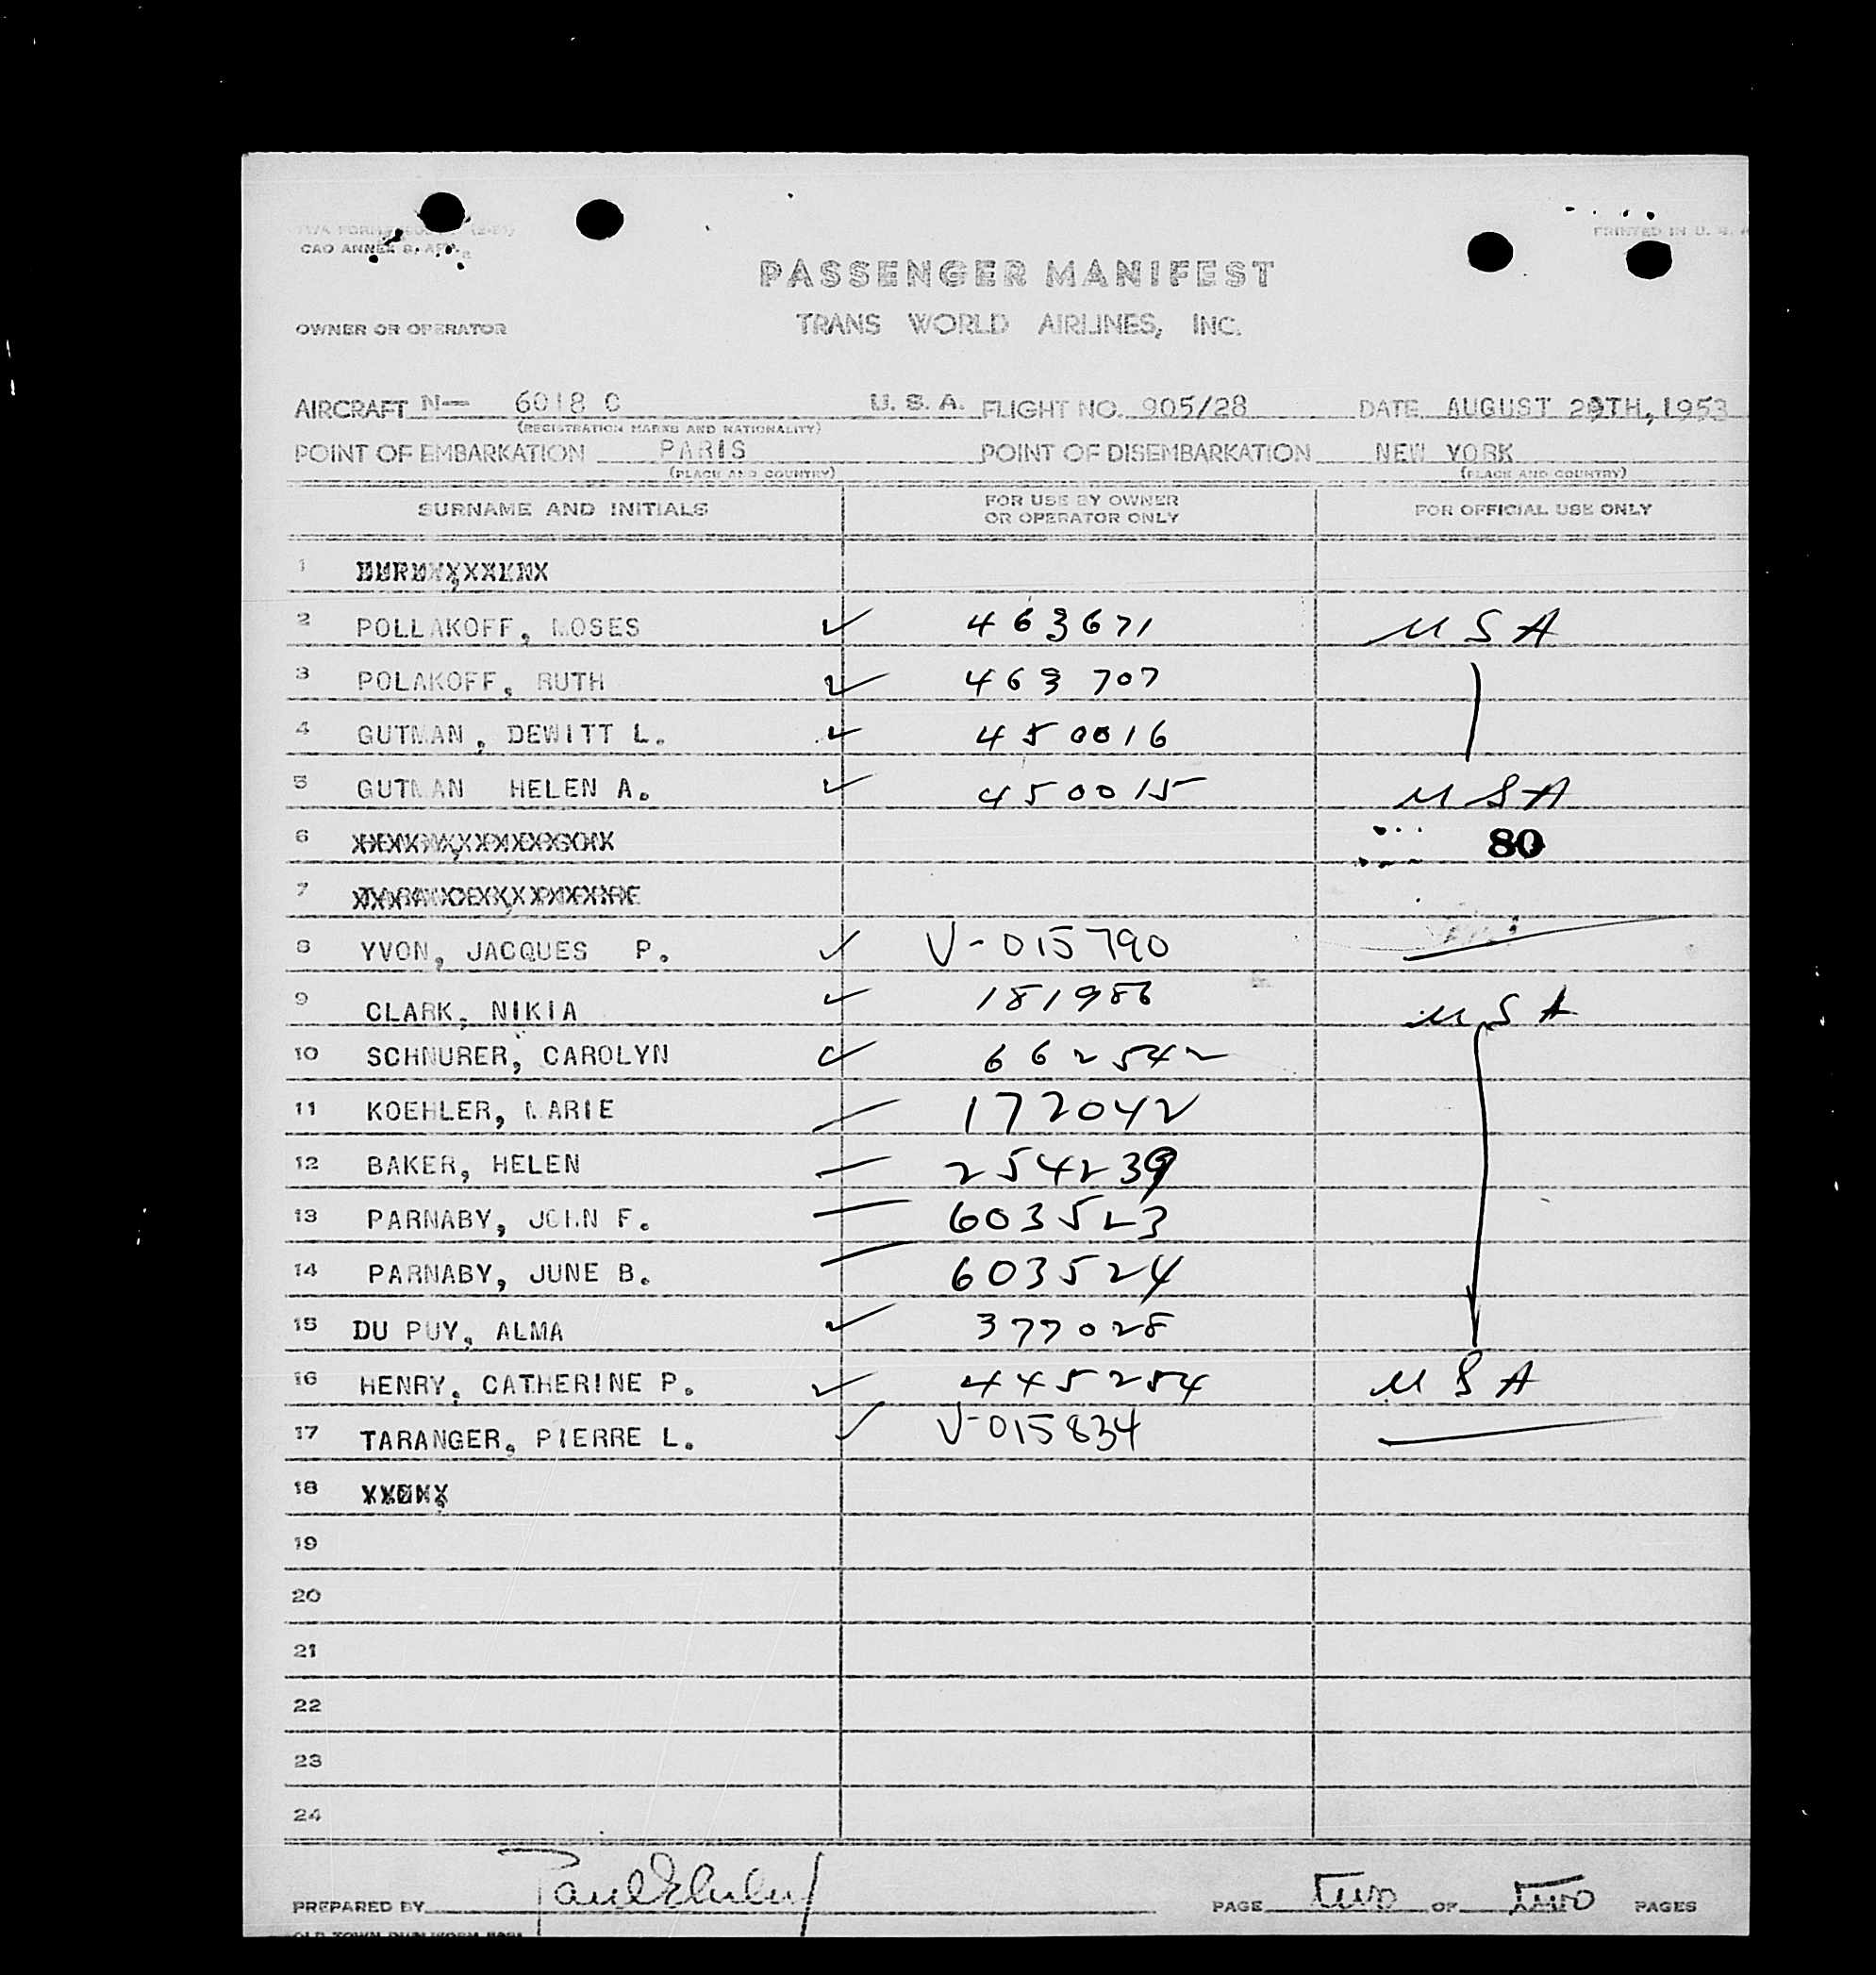 CAO ANNEX 8, APP. 2
PRINTED IN U. S. A
PASSENGER MANIFEST
OWNER OR OPERATOR TRANS WORLD AIRLINES, INC.
AIRCRAFT N— 6018 C U. S. A. FLIGHT NO. 905/28 DATE AUGUST 29TH, 1953
(REGISTRATION MARKS AND NATIONALITY)
POINT OF EMBARKATION PARIS POINT OF DISEMBARKATION NEW YORK
(PLACE AND COUNTRY) (PLACE AND COUNTRY)
SURNAME AND INITIALS FOR USE BY OWNER OR OPERATOR ONLY FOR OFFICIAL USE ONLY
1
2 POLLAKOFF, MOSES ✓ 463671 USA
3 POLAKOFF, RUTH ✓ 463 707
4 GUTMAN, DEWITT L. ✓ 450016
5 GUTMAN HELEN A. ✓ 450015 USA
6 80
7
8 YVON, JACQUES P. ✓ V-015790
9 CLARK, NIKIA ✓ 181986 USA
10 SCHNURER, CAROLYN ✓ 662542
11 KOEHLER, MARIE 172042
12 BAKER, HELEN 254239
13 PARNABY, JOHN F. 603523
14 PARNABY, JUNE B. 603524
15 DU PUY, ALMA ✓ 377028
16 HENRY, CATHERINE P. ✓ 445254 USA
17 TARANGER, PIERRE L. ✓ V-015834
18
19
20
21
22
23
24
PREPARED BY PAGE two OF two PAGES